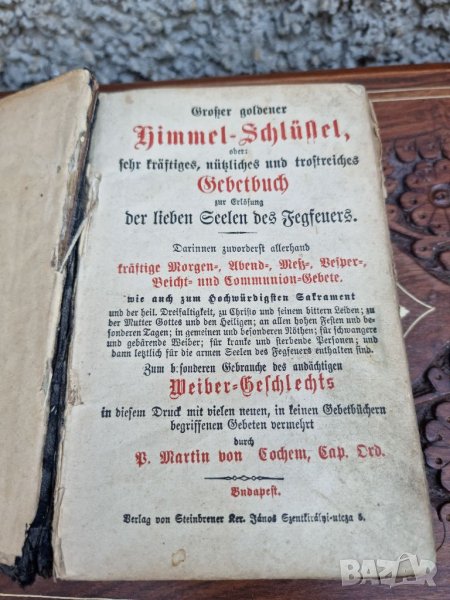 Großer goldener
Himmel-Schlüssel,
oder:
sehr kräftiges, nützliches und trostreiches
Gebetbuch
zur Erlösung
der lieben Seelen des Fegfeuers.
Darinnen zuvorderst allerhand
kräftige Morgen-, Abend-, Meß-, Vesper-,
Beicht- und Communion-Gebete.
wie auch zum Hochwürdigsten Sakrament
und der heil. Dreifaltigkeit, zu Christo und seinem bittern Leiden; zu
der Mutter Gottes und den Heiligen; an allen hohen Festen und be-
sonderen Tagen; in gemeinen und besonderen Nöthen; für schwangere
und gebärende Weiber; für kranke und sterbende Personen; und
dann letztlich für die armen Seelen des Fegfeuers enthalten sind.
Zum b:sonderen Gebrauche des andächtigen
Weiber-Geschlechts
in diesem Druck mit vielen neuen, in keinen Gebetbüchern
begriffenen Gebeten vermehrt
durch
P. Martin von Cochem, Cap. Ord.
Budapest.
Verlag von Steinbrener Ker. János Szentkirályi-utcza 6.
BAZAR.BG